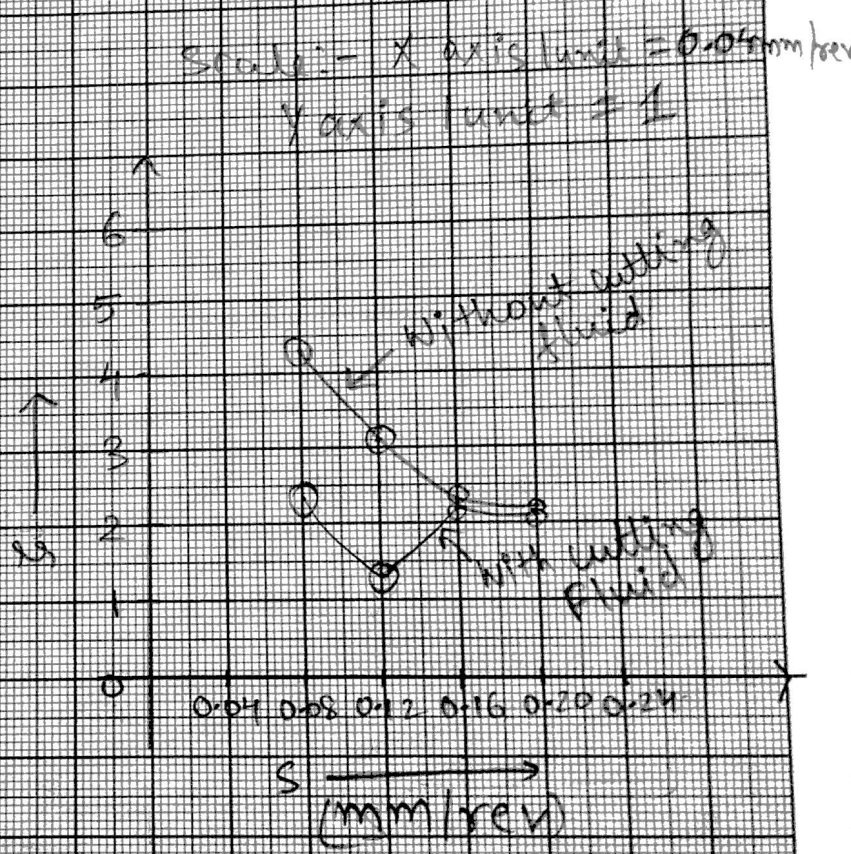 Scale:- X axis 1unit = 0.04mm/rev
Y axis 1unit = 1
6
5
4
3
2
1
0
Without cutting
fluid
With cutting
Fluid
0.04 0.08 0.12 0.16 0.20 0.24
S
(mm/rev)